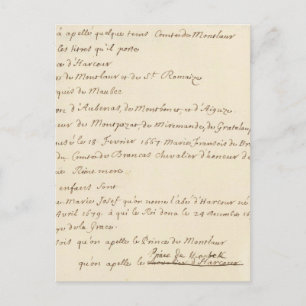 à apellé quelque tems Comte de Montlaur
les titres qu'il porte
ce d'Harcour
es de Montlaur et de St. Romaize
quis de Maubec
on d'Aubenas, de Montbonet, et d'Aiguze
eur de Montpezat, de Miremande, de Grateloup
usé le 18 Fevrier 1667 Marie, François de Br
du Comte de Brancas Chevalier d'honeur de
Reine mere.
enfans sont
Marie Josef qu'on nome l'abé d'Harcour né
Avril 1679. à qui le Roi dona le 24 Decembre 16
de la Grace.
qu'on apelle le Prince de Montlaur
Prince de Maubec
qu'on apelle le Chevalier d'Harcour